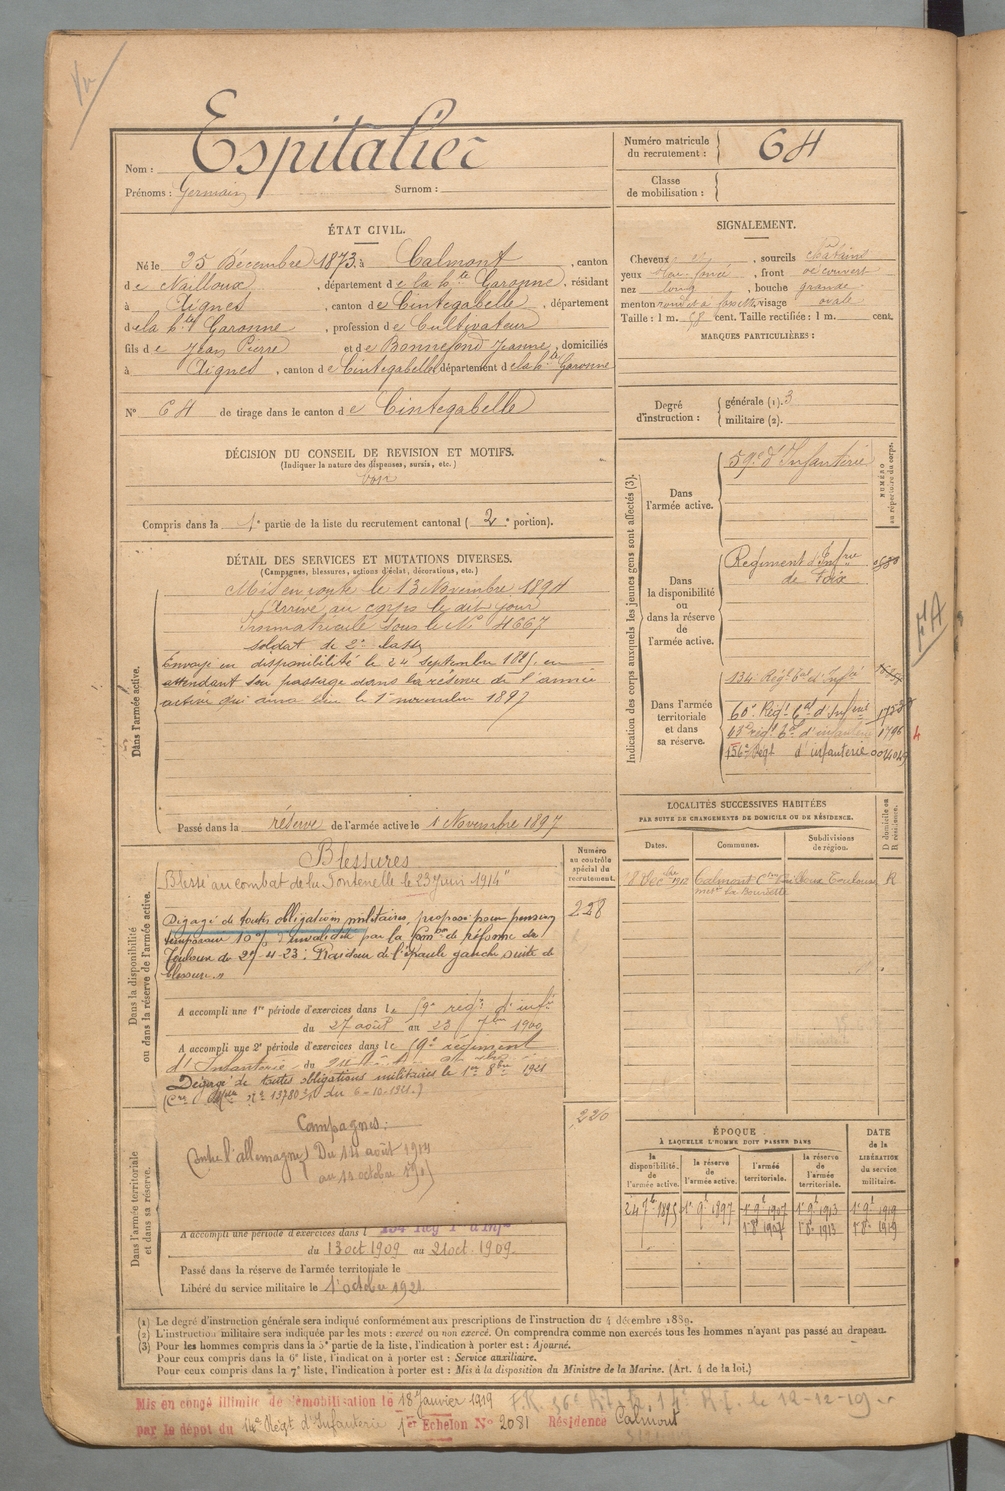 Vu
Nom : Espitalier
Prénoms : Germain Surnom :
Numéro matricule du recrutement : 64
Classe de mobilisation :
ÉTAT CIVIL.
Né le 25 Décembre 1873, à Calmont, canton
de Nailloux, département de la hte Garonne, résidant
à Aignes, canton de Cintegabelle, département
de la hte Garonne, profession de Cultivateur
fils de Jean Pierre et de Bonnefond Jeanne, domiciliés
à Aignes, canton de Cintegabelle, département de la hte Garonne
N° 64 de tirage dans le canton de Cintegabelle
SIGNALEMENT.
Cheveux, sourcils châtains
yeux, front découvert
nez long, bouche grande
menton rond et à fossette, visage ovale
Taille : 1 m. 58 cent. Taille rectifiée : 1 m. cent.
MARQUES PARTICULIÈRES :
Degré d'instruction : générale (1). 3
militaire (2).
DÉCISION DU CONSEIL DE REVISION ET MOTIFS.
(Indiquer la nature des dispenses, sursis, etc.)
bon
Compris dans la 1e partie de la liste du recrutement cantonal (2e portion).
DÉTAIL DES SERVICES ET MUTATIONS DIVERSES.
(Campagnes, blessures, actions d'éclat, décorations, etc.)
Dans l'armée active.
Mis en route le 13 Novembre 1894
Arrivé au corps le dit jour
Immatriculé sous le N° 4667
soldat de 2e classe
Envoyé en disponibilité le 24 septembre 1895 en
attendant son passage dans la réserve de l'armée
active qui aura lieu le 1er novembre 1897
Passé dans la réserve de l'armée active le 1 Novembre 1897
Indication des corps auxquels les jeunes gens sont affectés (3).
NUMÉRO au répertoire du corps.
Dans l'armée active. 59e d'Infanterie
Dans la disponibilité ou dans la réserve de l'armée active.
Régiment d'Infrie
de Foix
Dans l'armée territoriale et dans sa réserve.
134e Régt tal d'Infie
60e Régt tal d'Infrie
régt tal d'infanterie 1796
136e Régt d'infanterie
LOCALITÉS SUCCESSIVES HABITÉES
PAR SUITE DE CHANGEMENTS DE DOMICILE OU DE RÉSIDENCE.
D domicile ou R résidence.
Dates. Communes. Subdivisions de région.
8 Decbre 1912 Calmont Con Nailloux Toulouse R
Dans la disponibilité ou dans la réserve de l'armée active.
Numéro au contrôle spécial du recrutement.
228
Blessures
Blessé au combat de la Fontenelle le 23 Juin 1914"
Dégagé de toutes obligations militaires, proposé pour pension
temporaire 10 % d'invalidité par la Comon de réforme de
Toulouse du 27-4-23 : Raideur de l'épaule gauche suite de
blessure.»
A accompli une 1re période d'exercices dans le 59e régt d'infie
du 27 août au 23 7bre 1900
A accompli une 2e période d'exercices dans le 59e régiment
d'Infanterie du
Dégagé de toutes obligations militaires le 1er 8bre 1921
(Cre Mlle N° 13780 3/1 du 6-10-1921.)
Dans l'armée territoriale et dans sa réserve.
220
Campagnes :
Contre l'allemagne) Du 14 août 1914
A accompli une période d'exercices dans l 134 Régt T d'Infie
du 13 oct 1909 au 21 oct. 1909.
Passé dans la réserve de l'armée territoriale le
Libéré du service militaire le 1er octobre 1921
ÉPOQUE
À LAQUELLE L'HOMME DOIT PASSER DANS
la disponibilité de l'armée active.
la réserve de l'armée active.
l'armée territoriale.
la réserve de l'armée territoriale.
DATE de la LIBÉRATION du service militaire.
24 7b 1895 1er 9b 1897 1er 9b 1907 1er 9b 1913 1er 9b 1919
1er 8b 1907 1er 8b 1913 1er 8b 1919
(1) Le degré d'instruction générale sera indiqué conformément aux prescriptions de l'instruction du 4 décembre 1889.
(2) L'instruction militaire sera indiquée par les mots : exercé ou non exercé. On comprendra comme non exercés tous les hommes n'ayant pas passé au drapeau.
(3) Pour les hommes compris dans la 5e partie de la liste, l'indication à porter est : Ajourné.
Pour ceux compris dans la 6e liste, l'indication à porter est : Service auxiliaire.
Pour ceux compris dans la 7e liste, l'indication à porter est : Mis à la disposition du Ministre de la Marine. (Art. 4 de la loi.)
Mis en congé illimité de démobilisation le 18 Janvier 1919
par le dépôt du 14e Régt d'Infanterie 1er Echelon N° 2081 Résidence Calmont